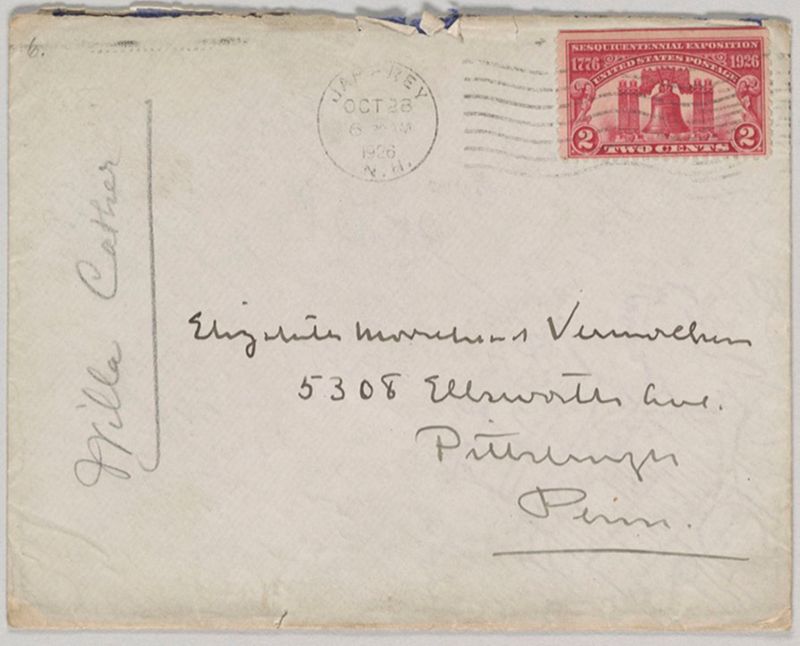 6.
JAFFREY
OCT 28
6
1926
N.H.
SESQUICENTENNIAL EXPOSITION
1776 UNITED STATES POSTAGE 1926
2 TWO CENTS 2
Willa Cather
Elizabeth Moorhead Vermorcken
5308 Ellsworth Ave.
Pittsburgh
Penn.